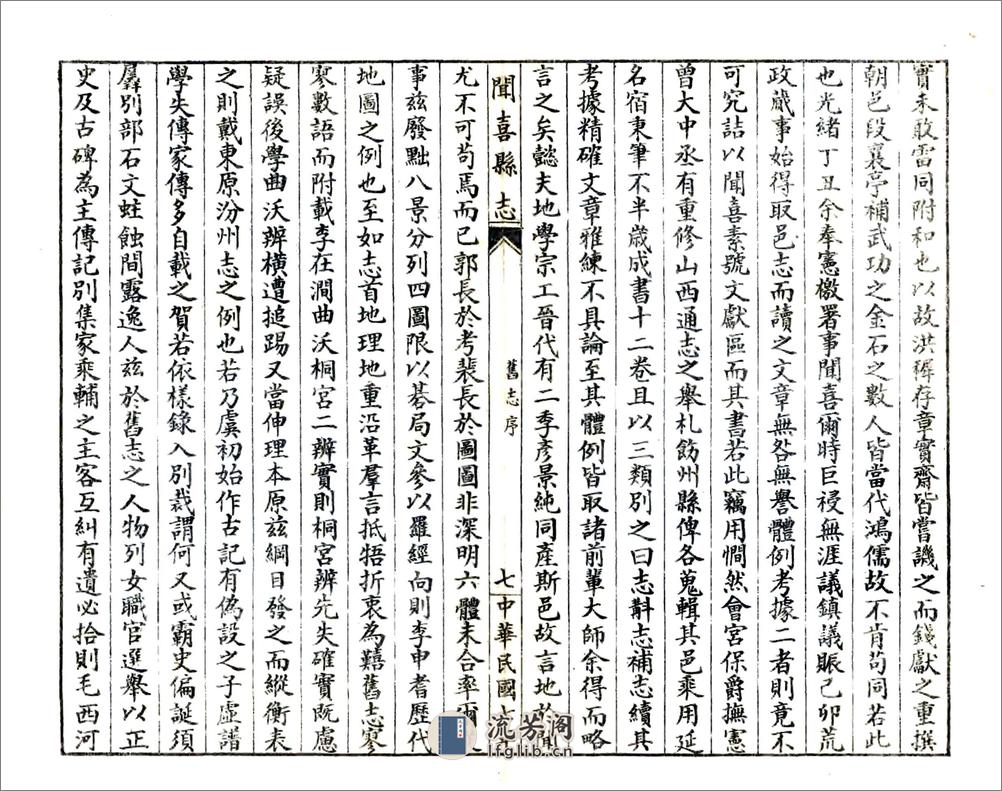 實未敢雷同附和也以故洪稺存章實齋皆嘗譏之而錢獻之重撰
朝邑段襄亭補武功之金石之數人皆當代鴻儒故不肯苟同若此
也光緒丁丑余奉憲檄署事聞喜爾時巨祲無涯議鎮議賑己卯荒
政蕆事始得取邑志而讀之文章無咎無譽體例考據二者則竟不
可究詰以聞喜素號文獻區而其書若此竊用憪然會宮保爵撫憲
曾大中丞有重修山西通志之舉札飭州縣俾各蒐輯其邑乘用延
名宿秉筆不半歲成書十二卷且以三類別之曰志斠志補志續其
考據精確文章雅練不具論至其體例皆取諸前輩大師余得而略
言之矣懿夫地學宗工晉代有二季彥景純同產斯邑故言地於聞
聞喜縣志
舊志序
七
中華民國
尤不可苟焉而已郭長於考裴長於圖圖非深明六體未合率爾
事茲廢黜八景分列四圖限以碁局文參以羅經向則李申耆歷代
地圖之例也至如志首地理地重沿革羣言抵牾折衷為囏舊志寥
寥數語而附載李在澗曲沃桐宮二辨實則桐宮辨先失確實既慮
疑誤後學曲沃辨橫遭搥踢又當伸理本原茲綱目發之而縱衡表
之則戴東原汾州志之例也若乃虞初始作古記有偽設之子虛譜
學失傳家傳多自載之賀若依樣錄入別裁謂何又或霸史偏誕須
羼別部石文蛀蝕間露逸人茲於舊志之人物列女職官選舉以正
史及古碑為主傳記別集家乘輔之主客互糾有遺必拾則毛西河
流芳阁
lfglib.cn